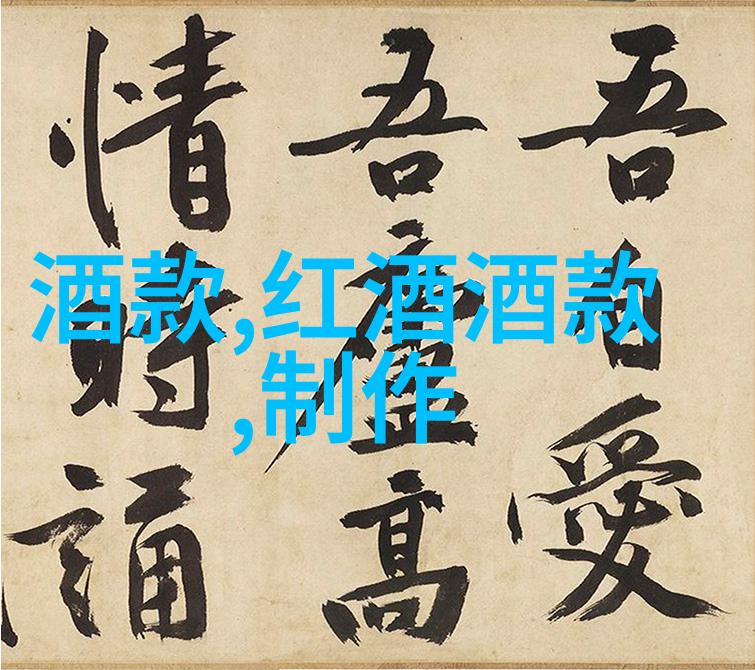 吾自愛
吾廬高
情時誦
酒款,红酒酒款
,制作